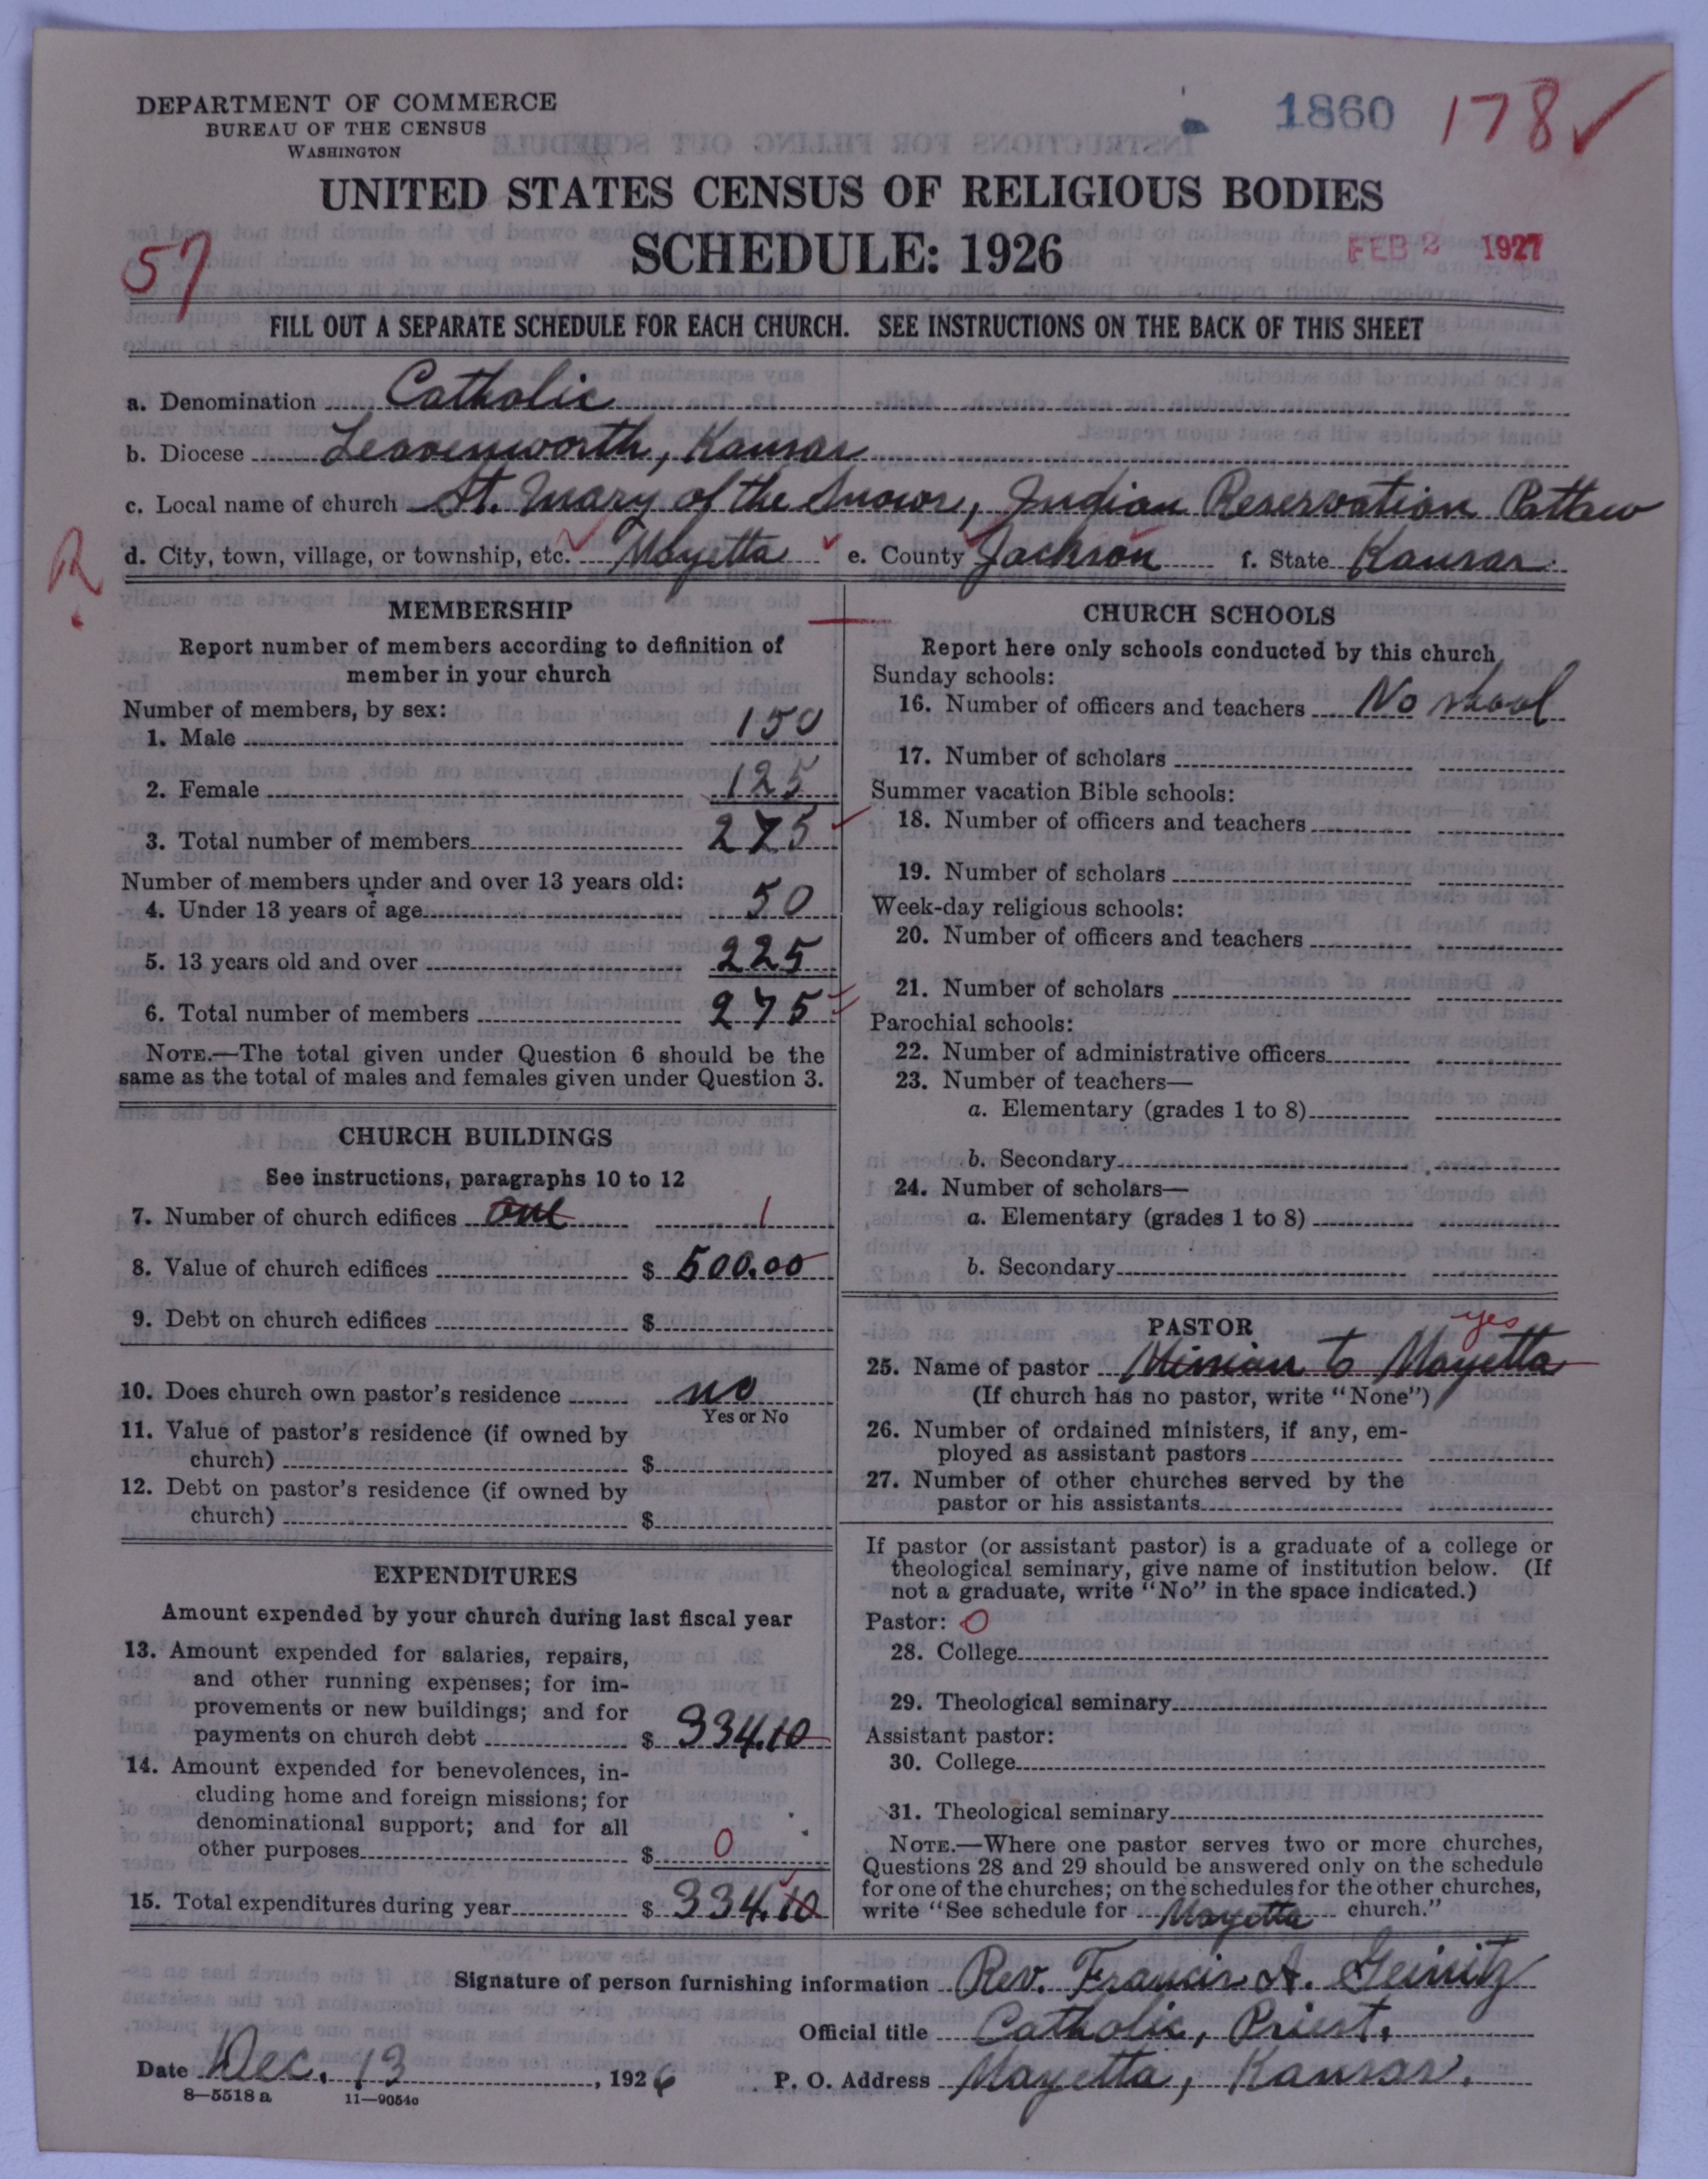 DEPARTMENT OF COMMERCE
BUREAU OF THE CENSUS
WASHINGTON
1860 178 ✓
UNITED STATES CENSUS OF RELIGIOUS BODIES
SCHEDULE: 1926
57
FEB 2 1927
FILL OUT A SEPARATE SCHEDULE FOR EACH CHURCH. SEE INSTRUCTIONS ON THE BACK OF THIS SHEET
a. Denomination Catholic
b. Diocese Leavenworth, Kansas
c. Local name of church St. Mary of the Snows, Indian Reservation Pottaw
R
d. City, town, village, or township, etc. Mayetta e. County Jackson f. State Kansas.
MEMBERSHIP
Report number of members according to definition of
member in your church
Number of members, by sex:
1. Male 150
2. Female 125
3. Total number of members 275
Number of members under and over 13 years old:
4. Under 13 years of age 50
5. 13 years old and over 225
6. Total number of members 275
NOTE.—The total given under Question 6 should be the
same as the total of males and females given under Question 3.
CHURCH BUILDINGS
See instructions, paragraphs 10 to 12
7. Number of church edifices one 1
8. Value of church edifices $ 500.00
9. Debt on church edifices $
10. Does church own pastor's residence no
Yes or No
11. Value of pastor's residence (if owned by
church) $
12. Debt on pastor's residence (if owned by
church) $
EXPENDITURES
Amount expended by your church during last fiscal year
13. Amount expended for salaries, repairs,
and other running expenses; for im-
provements or new buildings; and for
payments on church debt $ 334.10
14. Amount expended for benevolences, in-
cluding home and foreign missions; for
denominational support; and for all
other purposes $ 0
15. Total expenditures during year $ 334.10
CHURCH SCHOOLS
Report here only schools conducted by this church
Sunday schools:
16. Number of officers and teachers No skool
17. Number of scholars
Summer vacation Bible schools:
18. Number of officers and teachers
19. Number of scholars
Week-day religious schools:
20. Number of officers and teachers
21. Number of scholars
Parochial schools:
22. Number of administrative officers
23. Number of teachers—
a. Elementary (grades 1 to 8)
b. Secondary
24. Number of scholars—
a. Elementary (grades 1 to 8)
b. Secondary
PASTOR
yes
25. Name of pastor to Mayetta
(If church has no pastor, write "None")
26. Number of ordained ministers, if any, em-
ployed as assistant pastors
27. Number of other churches served by the
pastor or his assistants
If pastor (or assistant pastor) is a graduate of a college or
theological seminary, give name of institution below. (If
not a graduate, write "No" in the space indicated.)
Pastor: O
28. College
29. Theological seminary
Assistant pastor:
30. College
31. Theological seminary
NOTE.—Where one pastor serves two or more churches,
Questions 28 and 29 should be answered only on the schedule
for one of the churches; on the schedules for the other churches,
write "See schedule for Mayetta church."
Signature of person furnishing information Rev. Francis A. Geinitz
Official title Catholic, Priest.
Date Dec. 13, 1926
P. O. Address Mayetta, Kansas.
8—5518 a 11—9054o